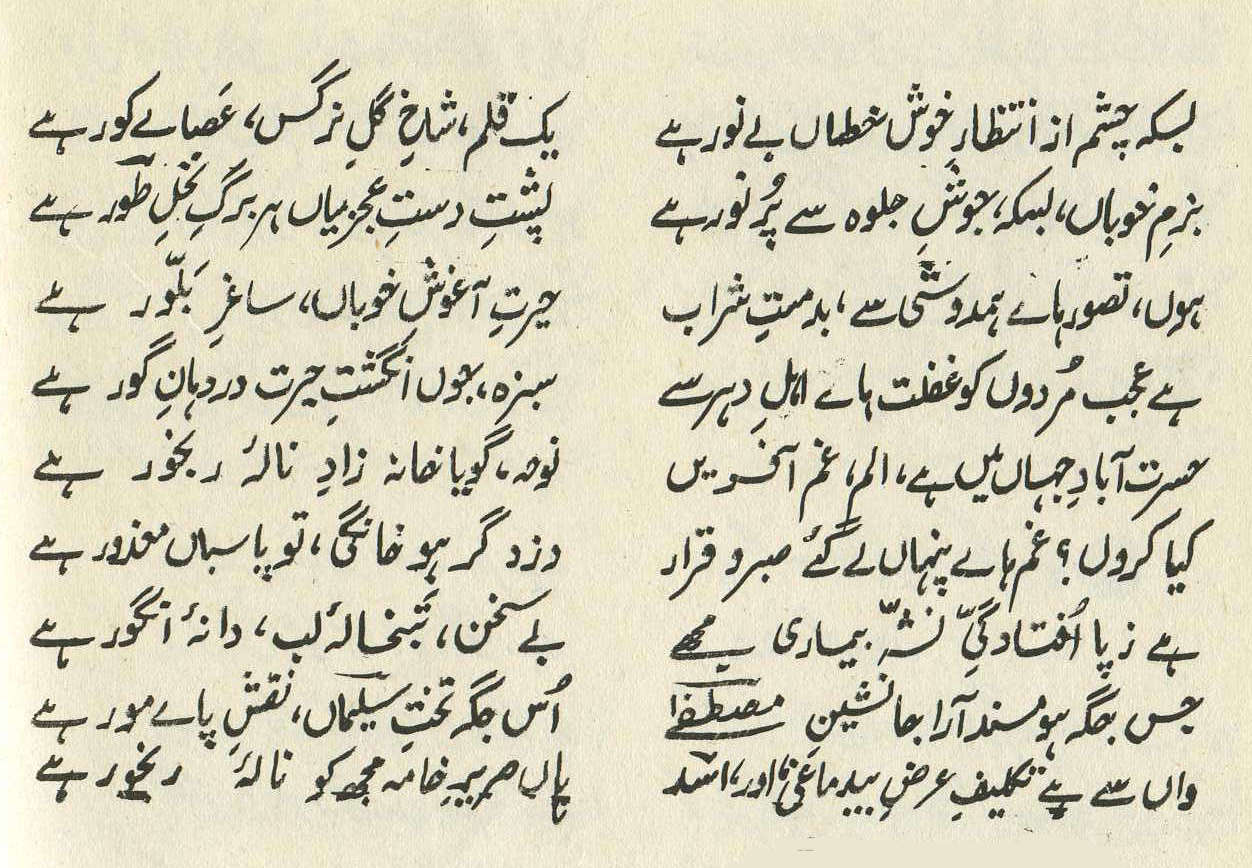 بسکہ چشم از انتظارِ خوش خطاں بے نور ہے
یک قلم، شاخِ گلِ نرگس، عَصاے کور ہے
بزمِ خوباں، بسکہ، جوشِ جلوہ سے پُر نور ہے
پشتِ دستِ عجزیاں ہر برگِ نخلِ طور ہے
ہوں، تصور ہاے ہمدوشی سے، بدمستِ شراب
حیرتِ آغوشِ خوباں، ساغرِ بَلّور ہے
ہے عجب مُردوں کو غفلت ہاے اہلِ دہر سے
سبزہ، جوں انگشتِ حیرت در دہانِ گور ہے
حسرت آبادِ جہاں میں ہے، الم، غم آفریں
نوحہ، گویا خانہ زادِ نالۂ رنجور ہے
کیا کروں؟ غم ہاے پنہاں لے گئے صبر و قرار
دزد گر ہو خانگی، تو پاسباں معذور ہے
ہے ز پا اُفتادگیِ نشّہ بیماری مجھے
بے سخن، تَبخالۂ لب، دانۂ انگور ہے
جس جگہ ہو مسند آرا جانشینِ مصطفےٰ
اُس جگہ تختِ سلیماں، نقشِ پاے مور ہے
واں سے ہے تکلیفِ عرضِ بیدماغی، اور، اسد
یاں صریرِ خامہ مجھ کو نالۂ رنجور ہے